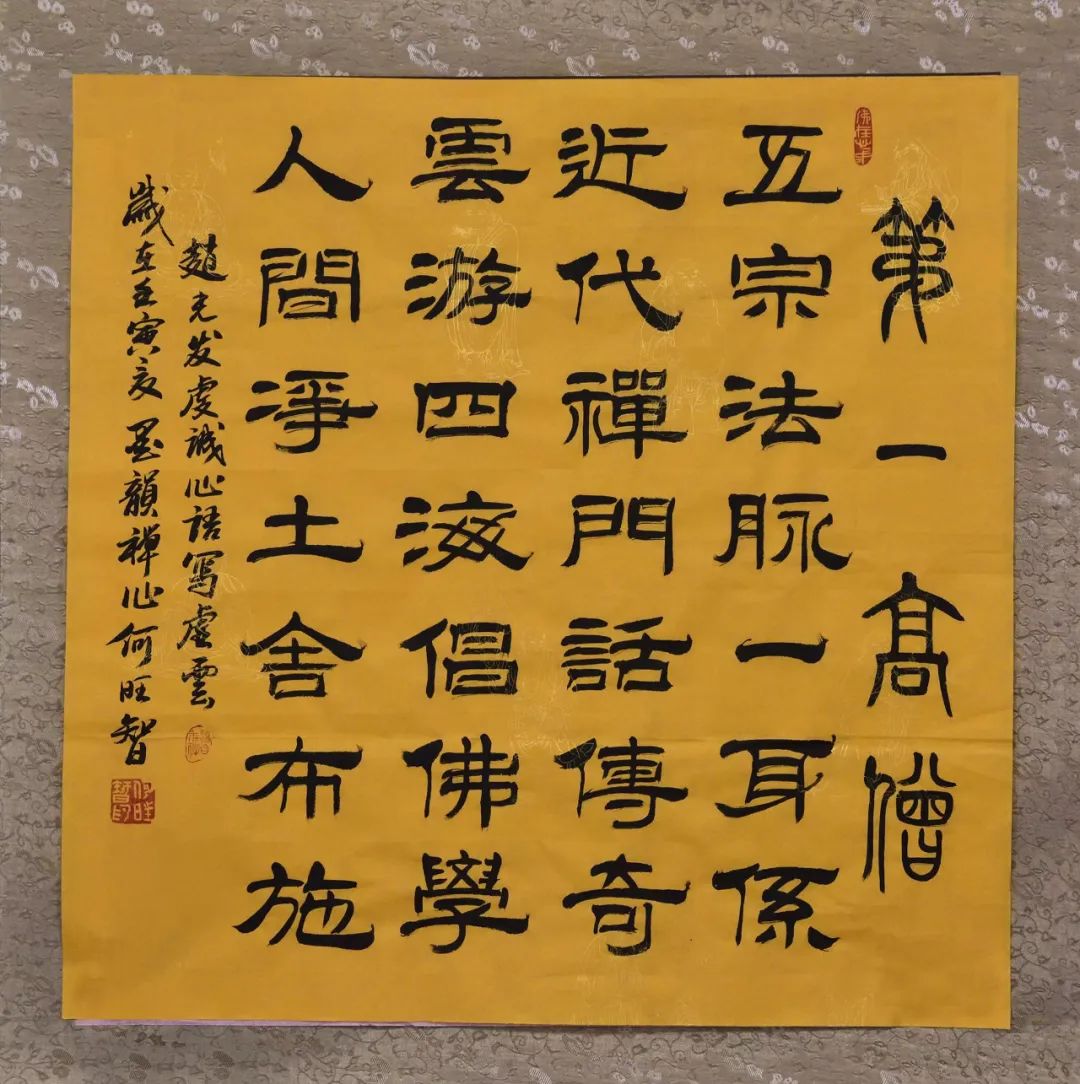 第一高僧
五宗法脉一耳係
近代禪門話傳奇
雲游四海倡佛學
人間淨土舍布施
趙先发虔誠心語寫虛雲
歲在壬寅亥墨韻禅心何旺智
何旺智印